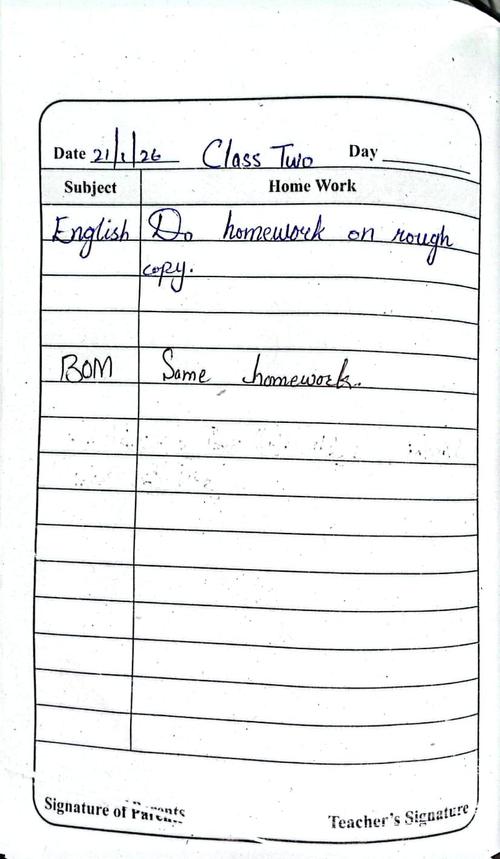 Date 21/1/26 Class Two Day
Subject Home Work
English Do homework on rough
copy.
BOM Same homework.
Signature of Parents Teacher's Signature